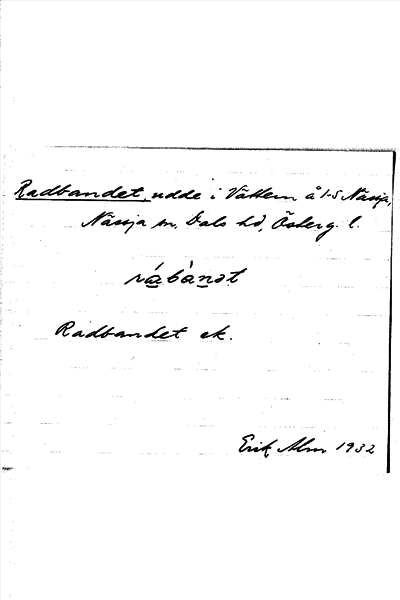 Radbandet, udde i Vättern å 1-5 Nässja,
Nässja sn, Dals hd, Österg. l.
rábànət
Radbandet ek.
Erik Alm 1932